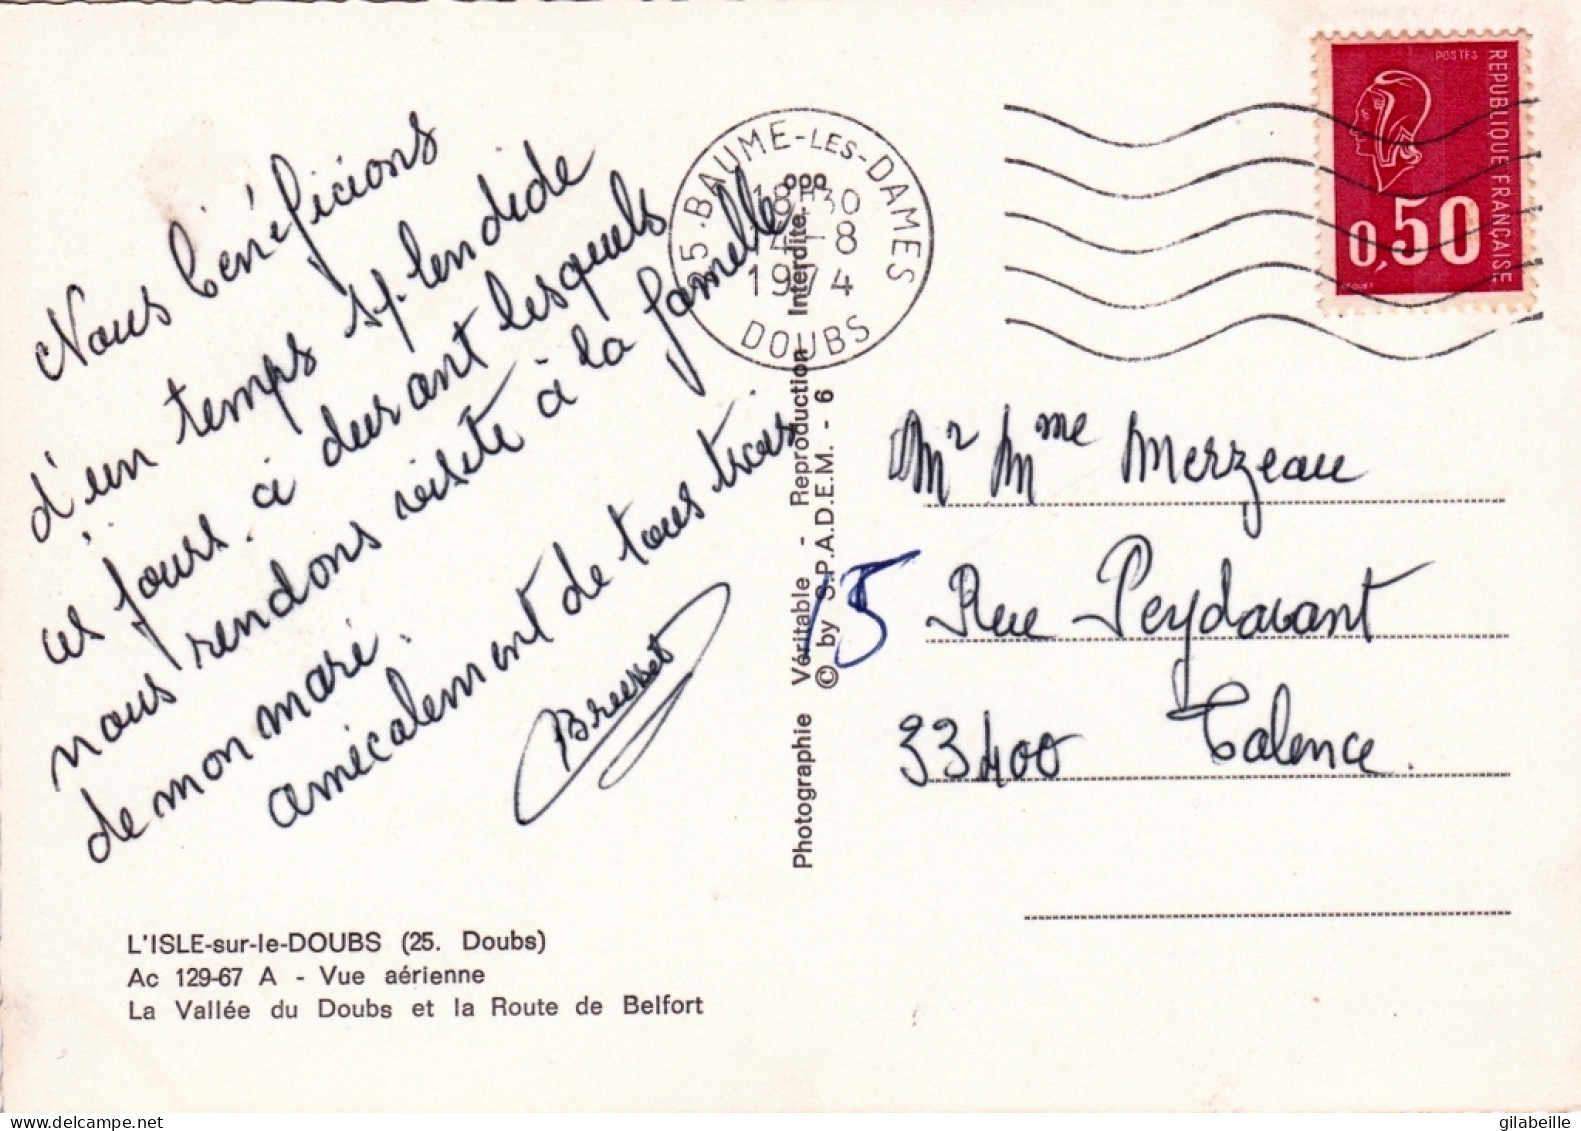 Nous bénéficions
d'un temps splendide
ces jours-ci durant lesquels
nous rendons visite à la famille
de mon mari.
amicalement de tous trois
Brusset
L'ISLE-sur-le-DOUBS (25. Doubs)
Ac 129-67 A - Vue aérienne
La Vallée du Doubs et la Route de Belfort
25 - BAUME-LES-DAMES
18H30
14-8
1974
DOUBS
Photographie Véritable - Reproduction Interdite
© by S.P.A.D.E.M. - 6
POSTES
REPUBLIQUE FRANÇAISE
0,50
Mr Mme Merzeau
15 Rue Peydavant
33400 Talence.
delcampe.net
gilabeille